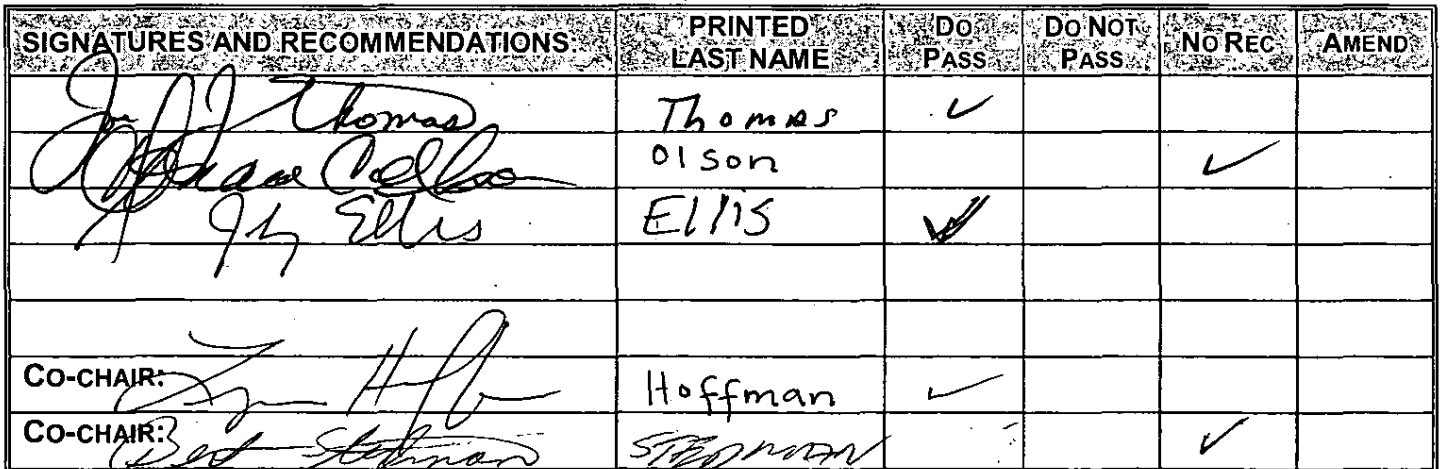 SIGNATURES AND RECOMMENDATIONS: PRINTED LAST NAME DO PASS DO NOT PASS NO REC AMEND
Thomas Thomas ✓
Olson ✓
Ellis Ellis ✓
CO-CHAIR: Hoffman ✓
CO-CHAIR: Bert Stedman STEDMAN ✓